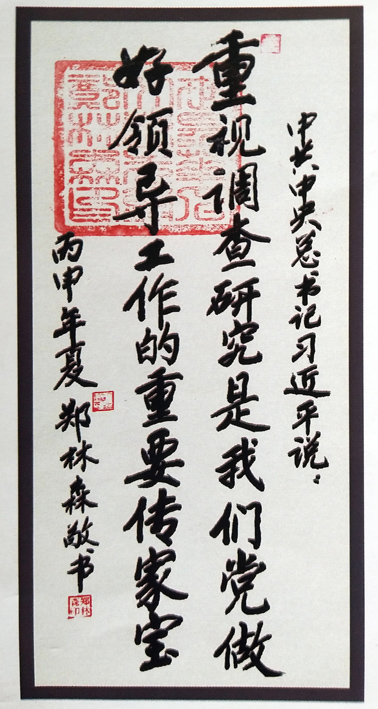 中共中央总书记习近平说：
重视调查研究是我们党做
好领导工作的重要传家宝
丙申年夏 郑林森敬书